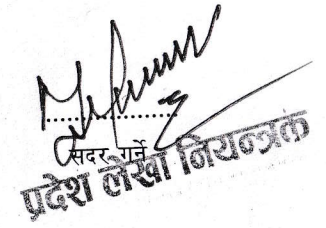 ..................
सदर गर्ने
प्रदेश लेखा नियन्त्रक